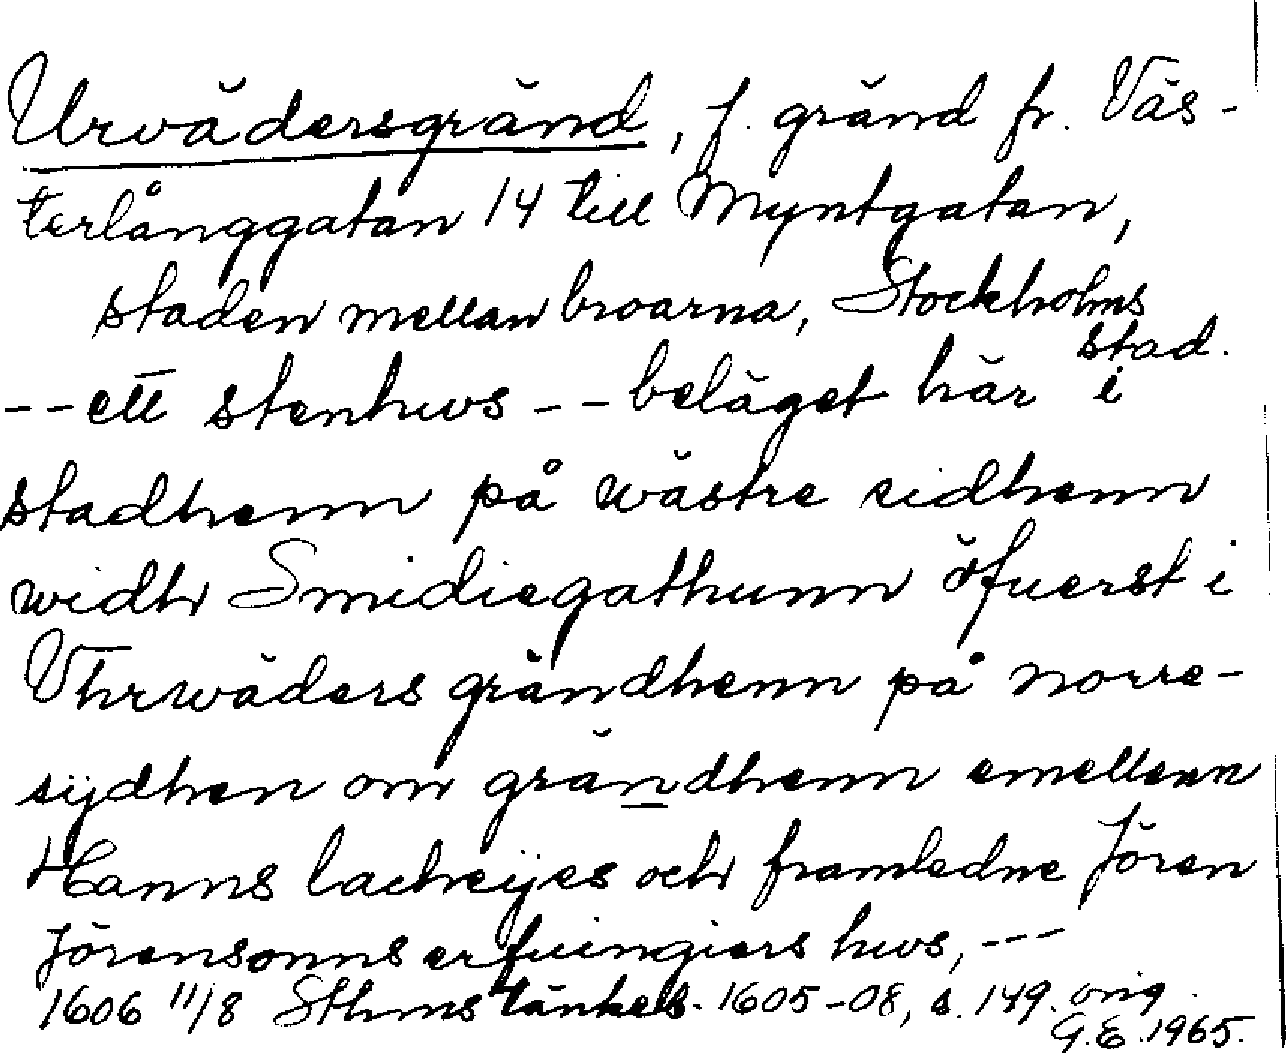 Urvädersgränd, f. gränd fr. Väs-
terlånggatan 14 till Myntgatan,
staden mellan broarna, Stockholms
stad.
-- ett stenhws -- beläget här i
stadhenn på wästre sidhenn
widh Smidiegathunn öfuerst i
Vhrwäders grändhenn på norre-
sijdhen om grändhenn emellenn
Hanns lacheijes och framledne Jören
Jörensonns erfuingiers hws, ---
1606 11/8 Sthms tänkeb. 1605-08, s. 149. orig.
G.E. 1965.